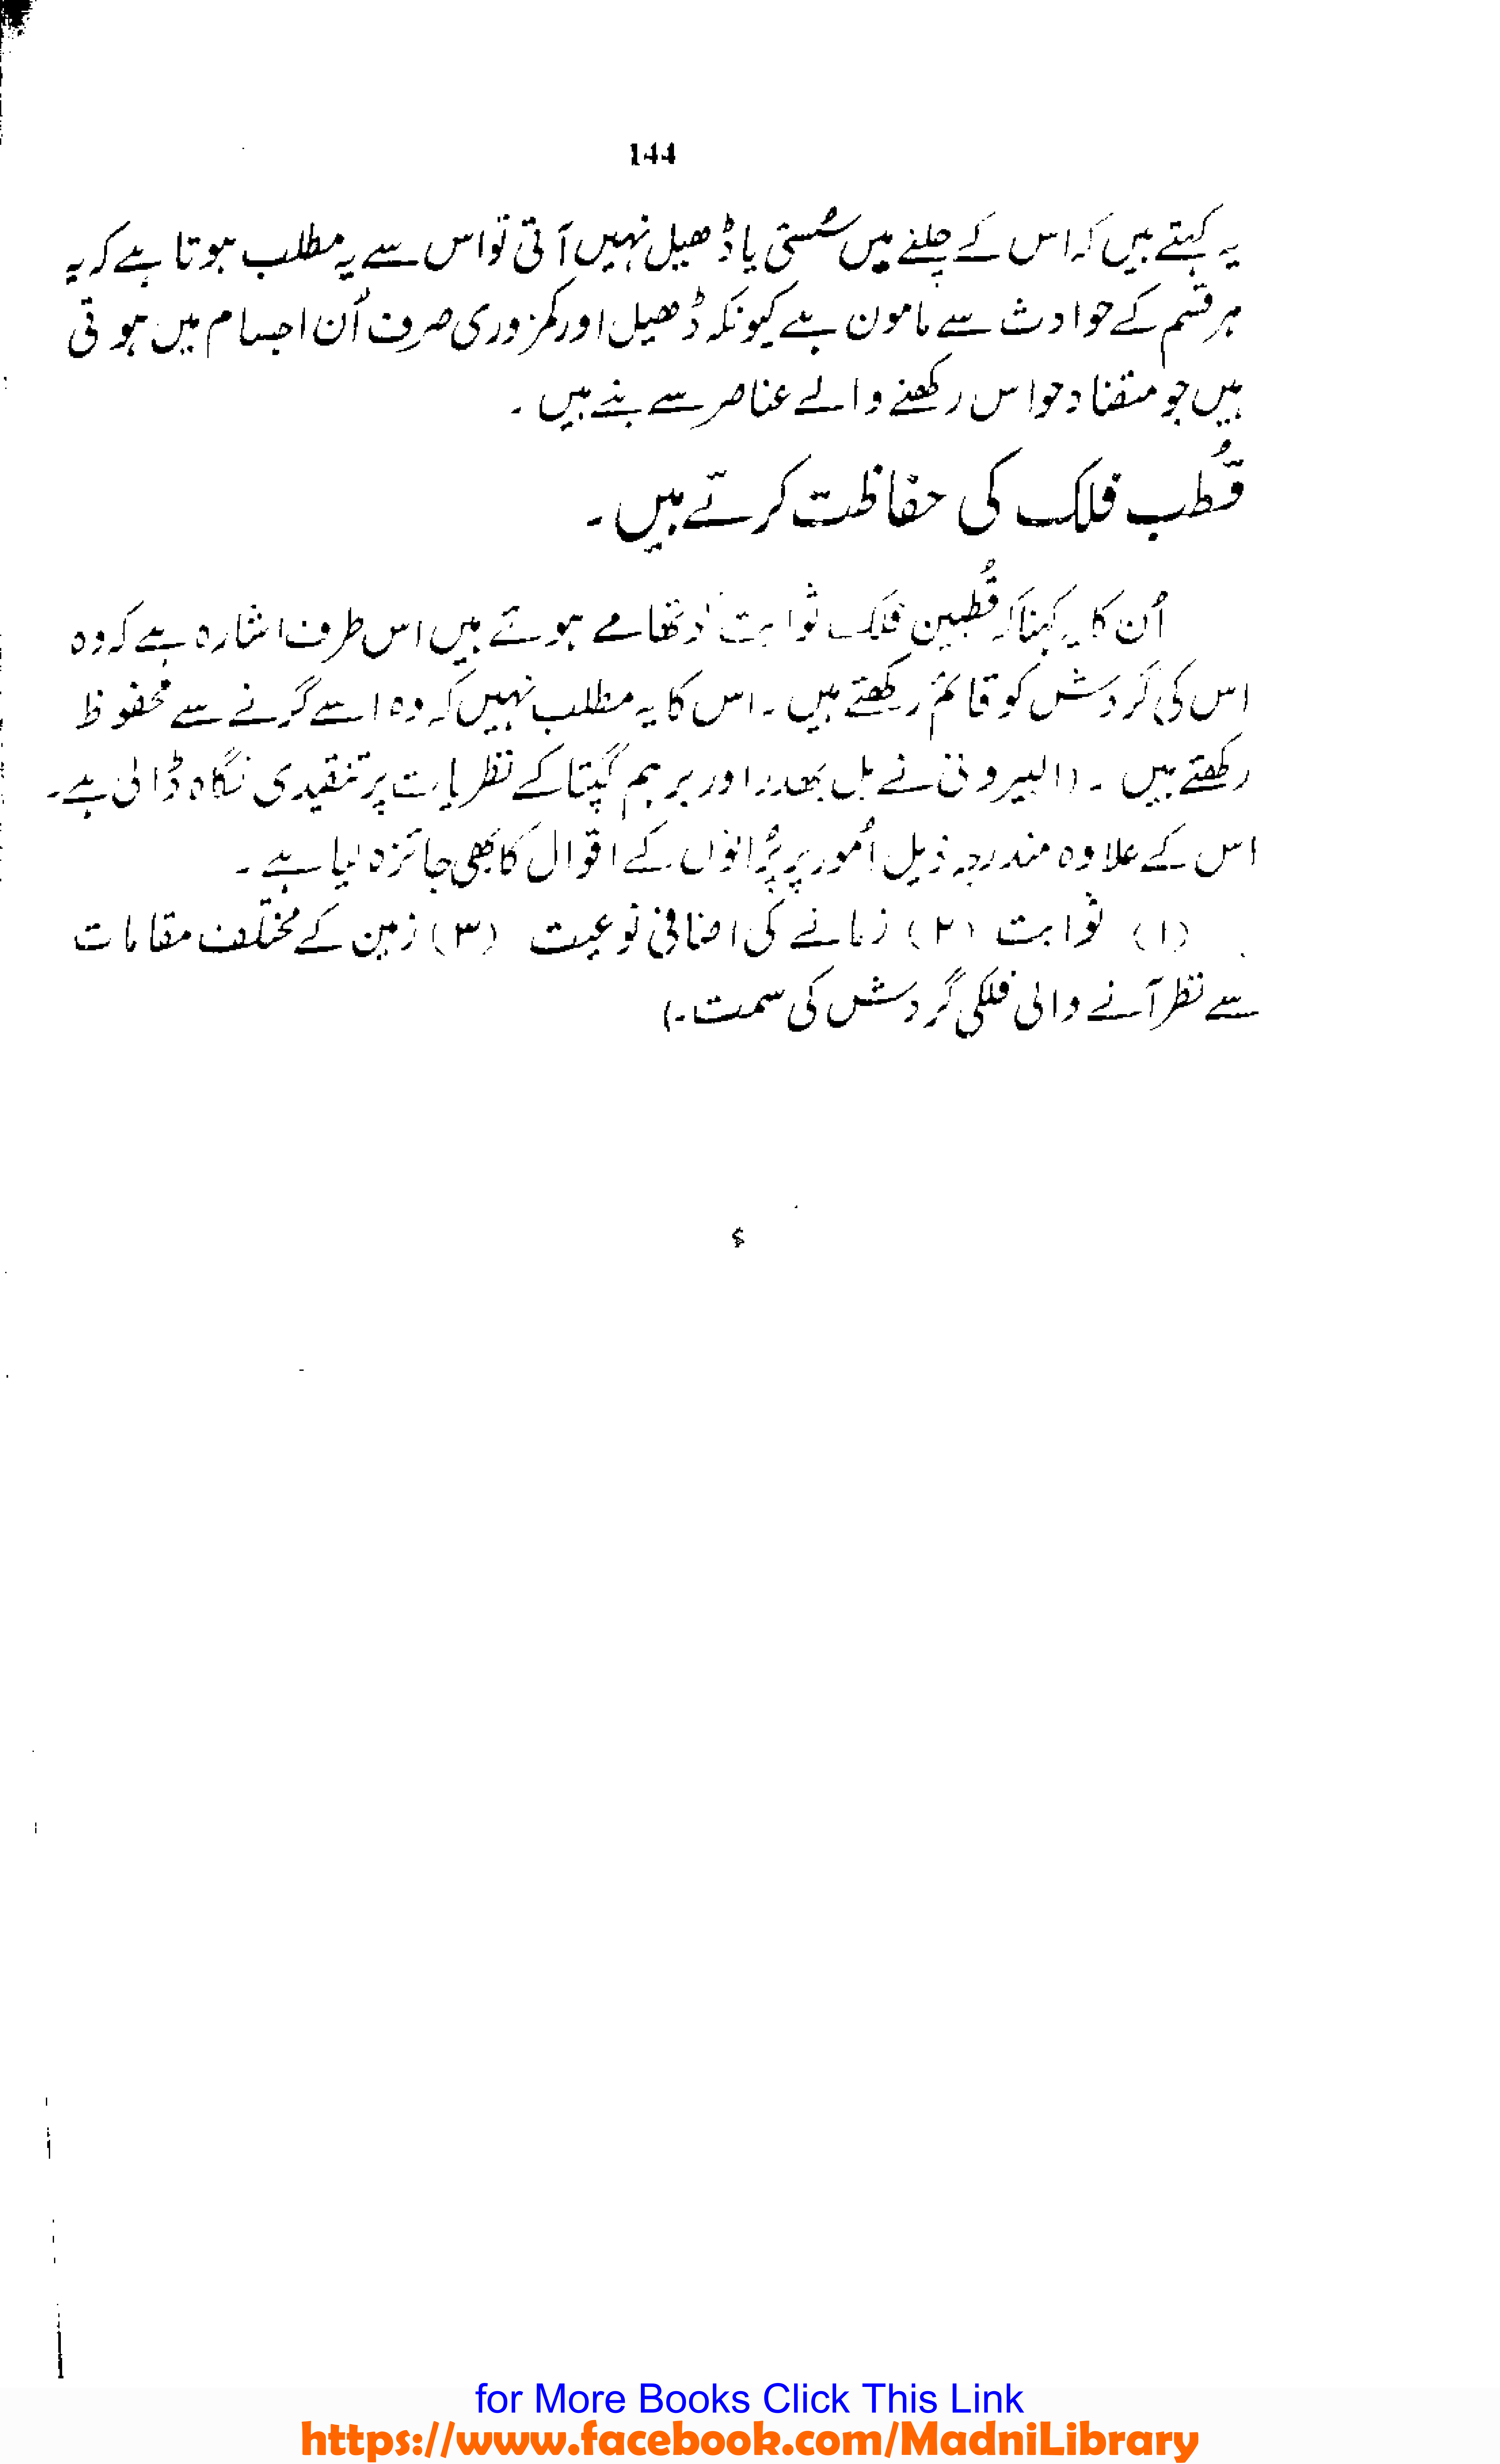 144
یہ کہتے ہیں کہ اس کے چلنے میں سُستی یا ڈھیل نہیں آتی تو اس سے یہ مطلب ہوتا ہے کہ یہ
ہر قسم کے حوادث سے مامون ہے کیونکہ ڈھیل اور کمزوری صرف اُن اجسام میں ہوتی
ہیں جو متضاد حواس رکھنے والے عناصر سے بنے ہیں ۔
قُطب فلک کی حفاظت کرتے ہیں ۔
اُن کا یہ کہنا کہ قُطبین فلک ثوابت کو تھامے ہوئے ہیں اس طرف اشارہ ہے کہ وہ
اس کی گردش کو قائم رکھتے ہیں ۔ اس کا یہ مطلب نہیں کہ وہ اسے گرنے سے محفوظ
رکھتے ہیں ۔ (البیرونی نے بل بھدر اور برہم گپتا کے نظریات پر تنقیدی نگاہ ڈالی ہے ۔
اس کے علاوہ مندرجہ ذیل اُمور پر پُرانوں کے اقوال کا بھی جائزہ لیا ہے ۔
(۱) ثوابت (۲) زمانے کی اضافی نوعیت (۳) زمین کے مختلف مقامات
سے نظر آنے والی فلکی گردش کی سمت ۔)
for More Books Click This Link
https://www.facebook.com/MadniLibrary